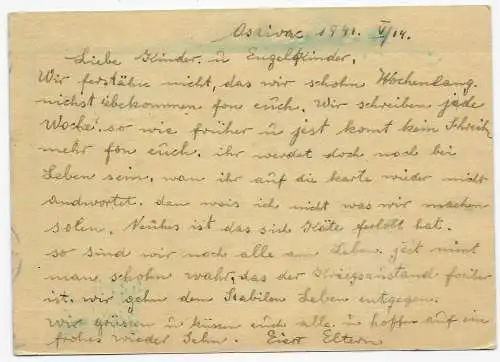 Oszivac 1941. V/14.
Liebe Kinder. u Enzelkinder.
Wir ferstähn nicht, das wir schohn Wochenlang.
nichst übekommen fon euch. Wir schreiben jade
Woche. so wie früher u jest komt kein Schreib
mehr fon euch. ihr werdet doch noch bei
Leben sein. wan ihr auf die karte wieder nicht
andwortet. dan weis ich nicht was wir machen
solen. Neühes ist das sich Käte ferlobt hat.
so sind wir noch alle am Leben. jezt nimt
man schohn wahr, das der Kriegsaustand früher
ist. wir gehn dem Stabilen Leben entgegen.
Wir grüssen u küssen euch alle u hoffen auf ein
frohes wieder Sehn. Eiere Eltern